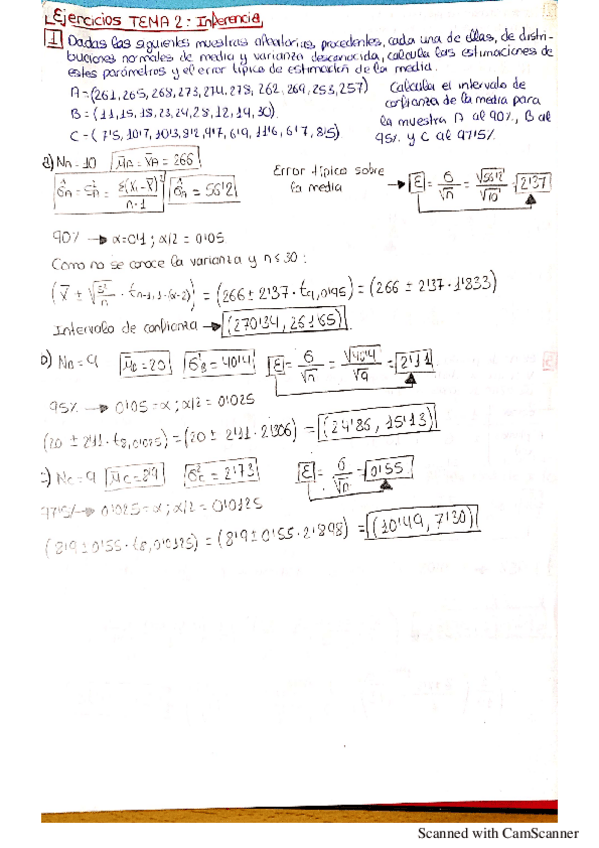 Ejercicios TEMA 2: Inferencia
1 Dadas las siguientes muestras aleatorias, procedentes, cada una de ellas, de distri-
buciones normales de media y varianza desconocida, calcula las estimaciones de
estos parámetros y el error típico de estimación de la media.
A=(261, 265, 268, 273, 274, 278, 262, 269, 253, 257)
B = (11, 15, 18, 23, 24, 28, 12, 19, 30)
C = ( 7'5, 10'7, 10'3, 8'2, 9'7, 6'9, 11'6, 6'7, 8'5)
Calcula el intervalo de
confianza de la media para
la muestra A al 90%, B al
95% y C al 97'5%.
a) NA = 10 μ̂A = x̄A = 266
σ̂²A = S²A = Σ(Xi - X̄)² / n-1 σ̂²A = 56'2
Error típico sobre
la media → E = σ/√n = √56'2/√10 = 2'37
90% → α=0'1 ; α/2 = 0'05
Como no se conoce la varianza y n≤30:
(X̄ ± √s²/n · t n-1, 1-α/2) = (266 ± 2'37 · t9, 0'95) = (266 ± 2'37 · 1'833)
Intervalo de confianza → (270'34, 261'65)
b) NB = 9 μ̂B = 20 σ̂²B = 40'4 E = σ/√n = √40'4/√9 = 2'11
95% → 0'05 = α ; α/2 = 0'025
(20 ± 2'11 · t8, 0'025) = (20 ± 2'11 · 2'306) = (24'85, 15'13)
c) NC = 9 μ̂C = 8'9 σ̂²C = 2'73 E = σ/√n = 0'55
97'5% → 0'025 = α ; α/2 = 0'0125
(8'9 ± 0'55 · t8, 0'0125) = (8'9 ± 0'55 · 2'898) = (10'49, 7'30)
Scanned with CamScanner